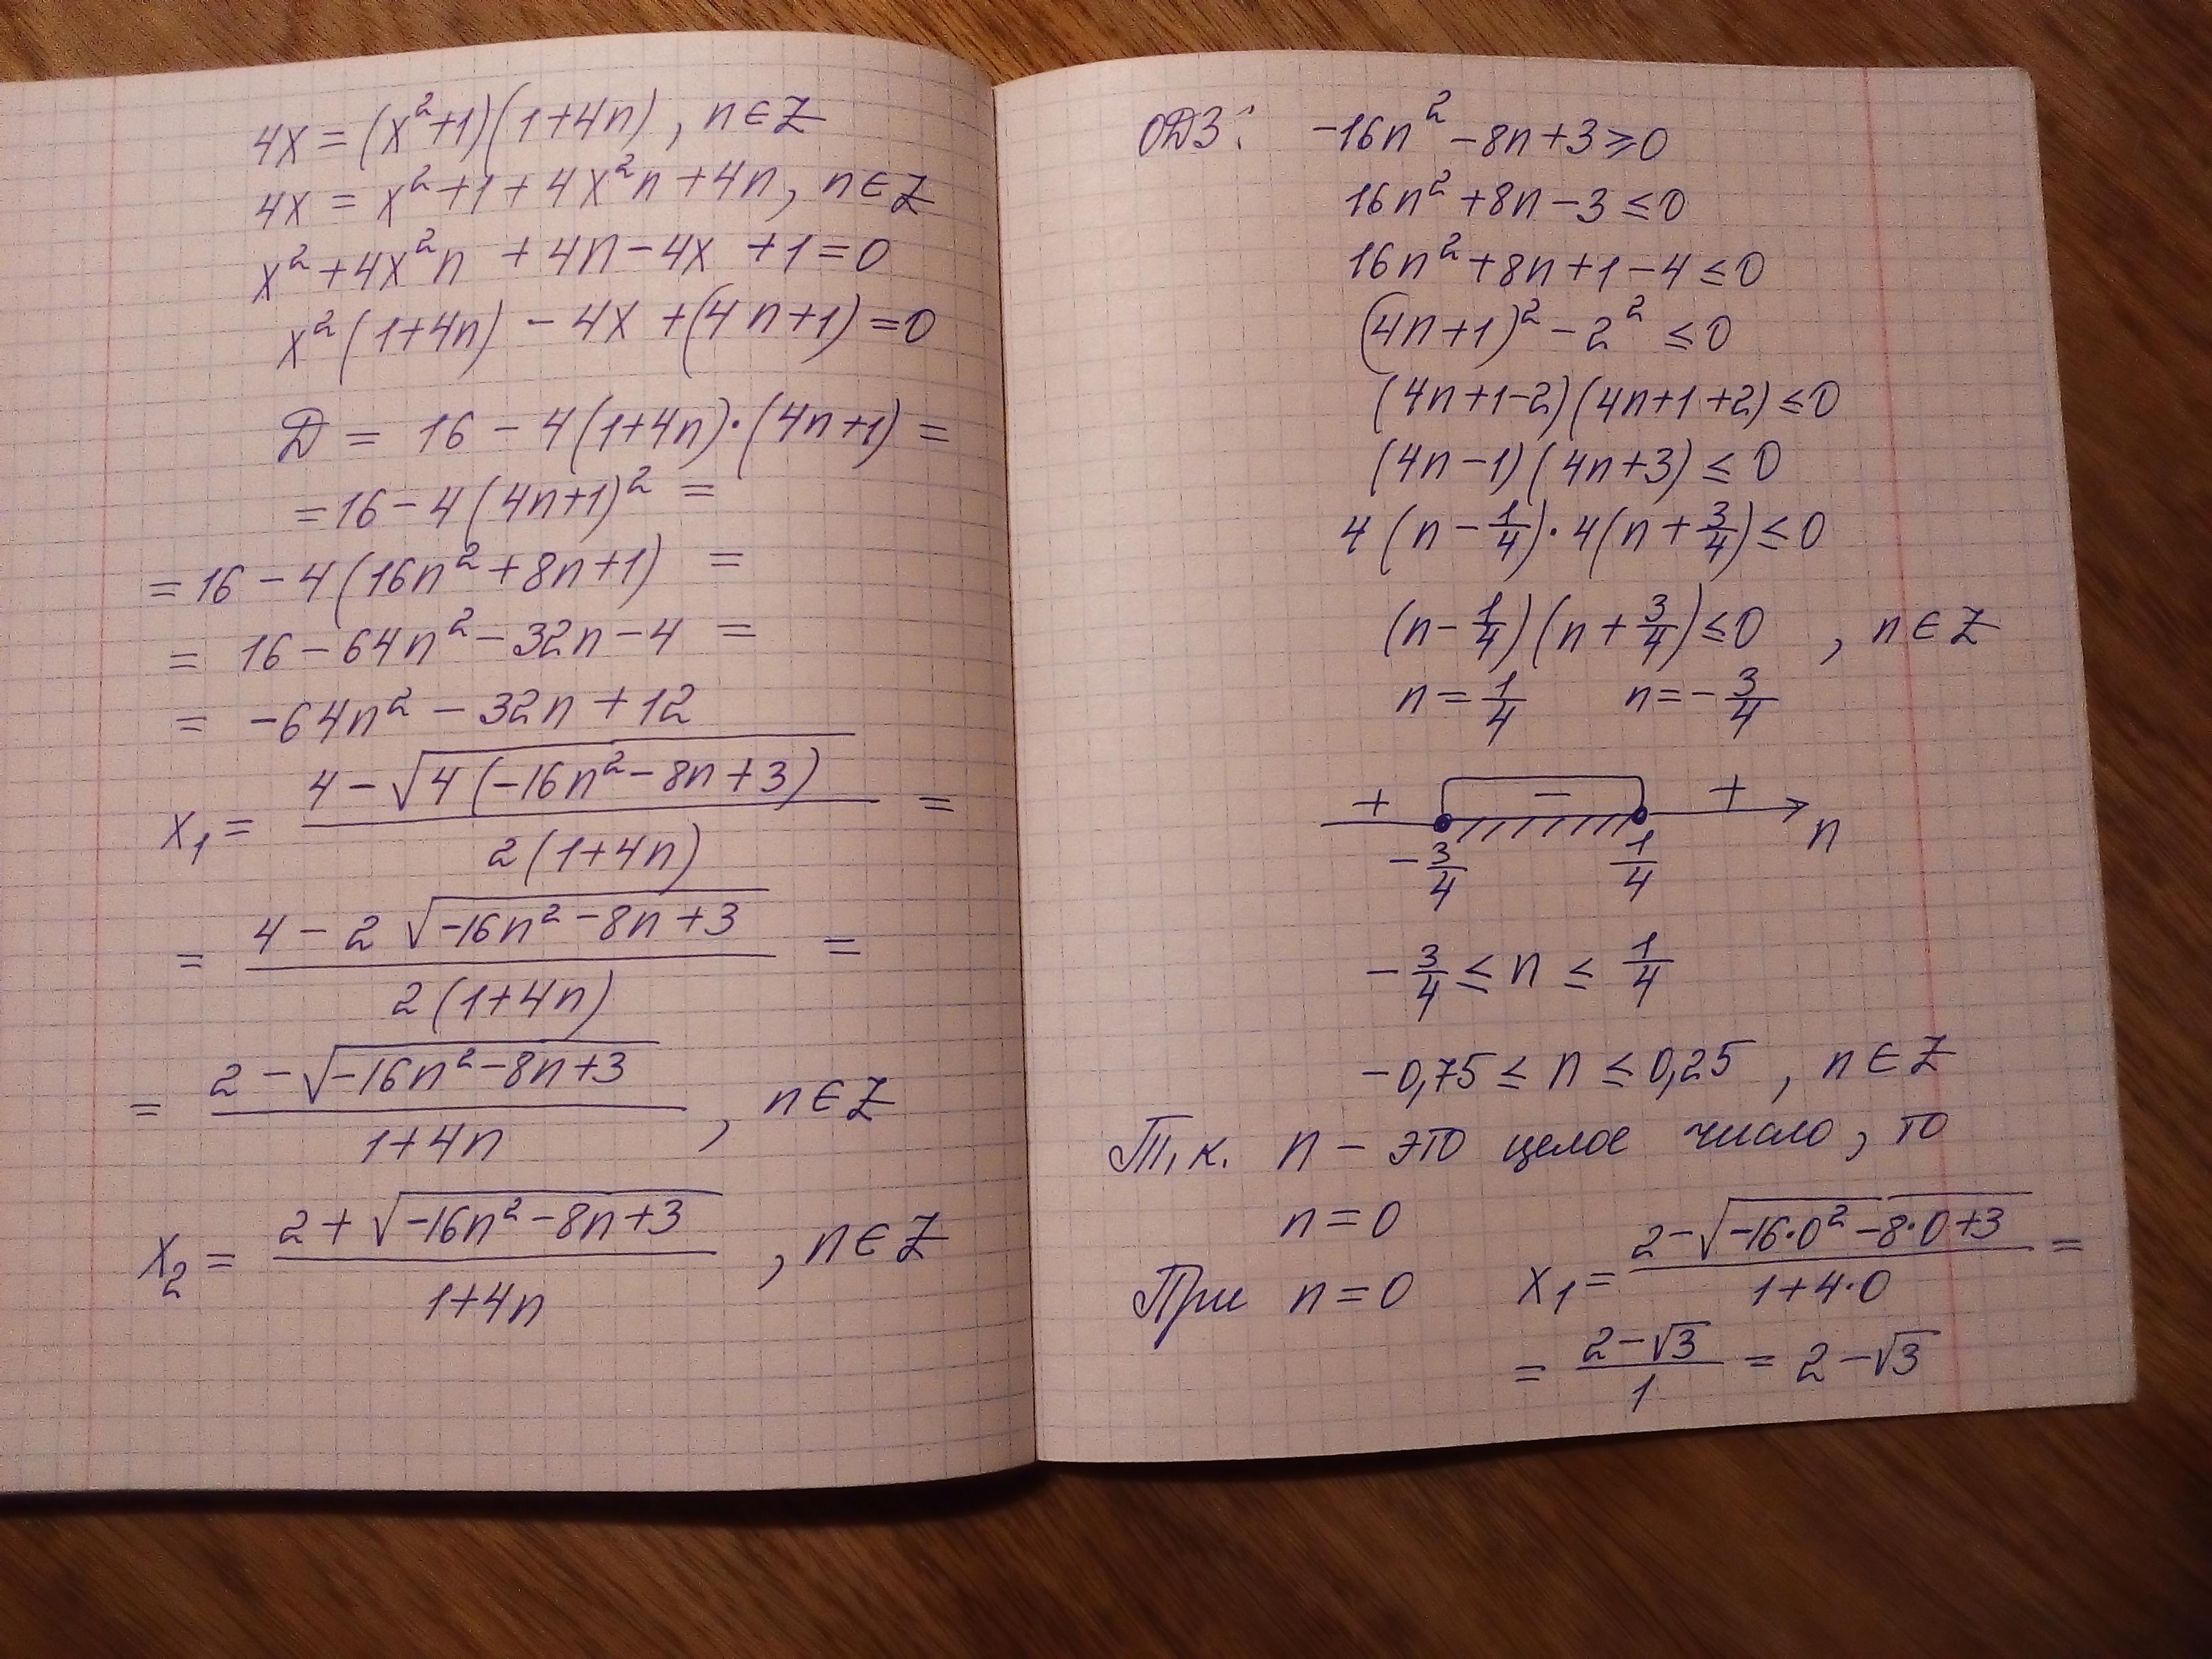 4x = (x²+1)(1+4n), n∈Z
4x = x²+1+4x²n+4n, n∈Z
x²+4x²n+4n-4x+1=0
x²(1+4n)-4x+(4n+1)=0
Д = 16-4(1+4n)·(4n+1) =
=16-4(4n+1)² =
=16-4(16n²+8n+1) =
= 16-64n²-32n-4 =
= -64n²-32n+12
x₁= (4-√(4(-16n²-8n+3)))/(2(1+4n)) =
= (4-2√(-16n²-8n+3))/(2(1+4n)) =
= (2-√(-16n²-8n+3))/(1+4n), n∈Z
x₂= (2+√(-16n²-8n+3))/(1+4n), n∈Z
ОДЗ: -16n²-8n+3≥0
16n²+8n-3≤0
16n²+8n+1-4≤0
(4n+1)²-2²≤0
(4n+1-2)(4n+1+2)≤0
(4n-1)(4n+3)≤0
4(n-1/4)·4(n+3/4)≤0
(n-1/4)(n+3/4)≤0, n∈Z
n=1/4 n=-3/4
+ - +
-3/4 1/4 n
-3/4≤n≤1/4
-0,75≤n≤0,25, n∈Z
Т.к. n - это целое число, то
n=0
При n=0 x₁= (2-√(-16·0²-8·0+3))/(1+4·0) =
= (2-√3)/1 = 2-√3